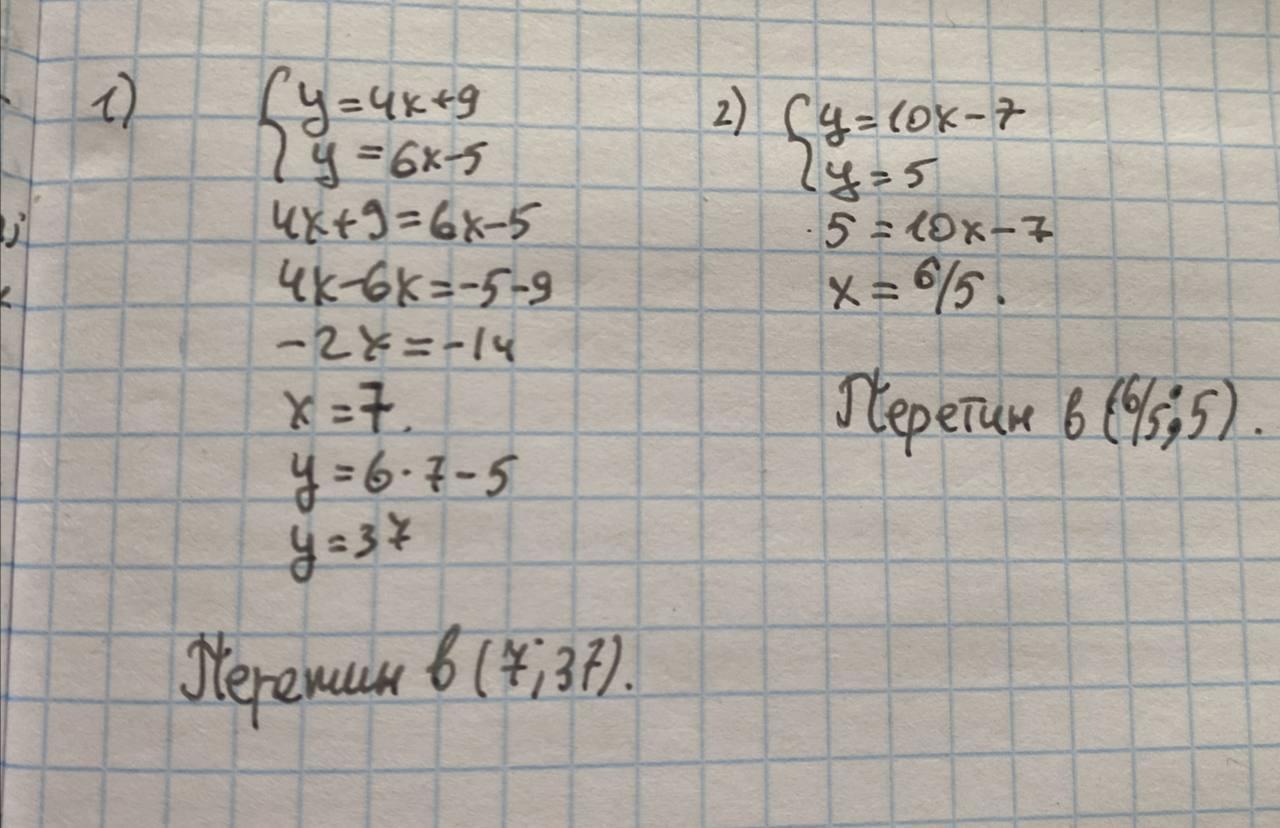 1)
{ y = 4x+9
y = 6x-5
4x+9=6x-5
4x-6x=-5-9
-2x=-14
x=7.
y=6·7-5
y=37
Перетин в (7;37).
2)
{ y=10x-7
y=5
5=10x-7
x=6/5.
Перетин в (6/5;5).